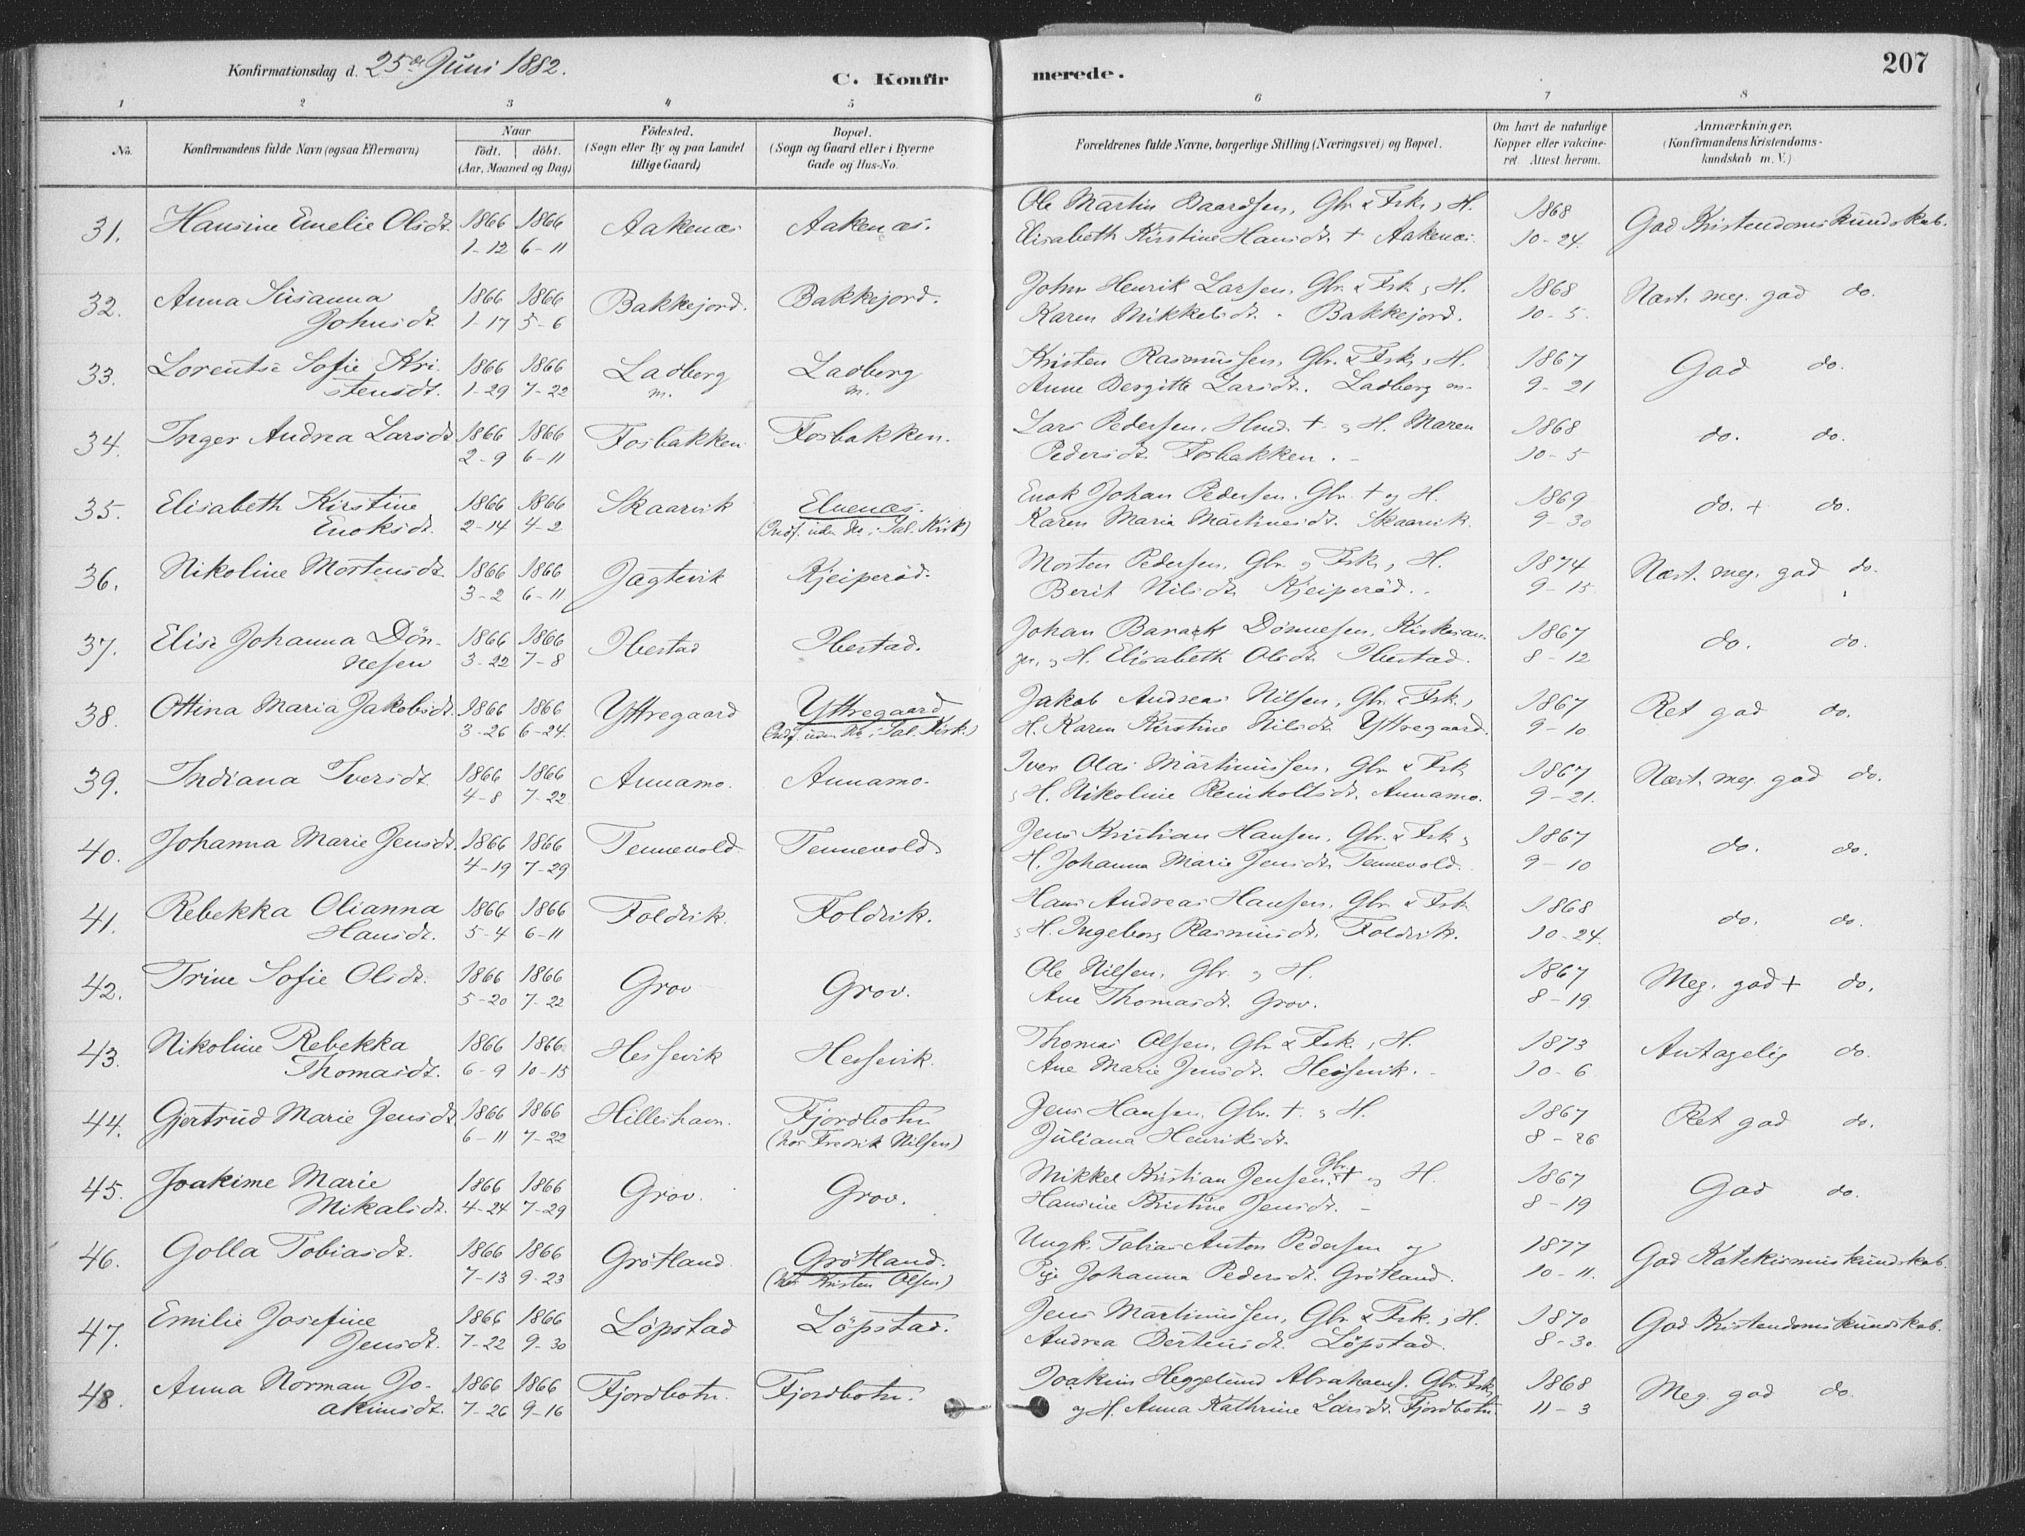 Konfirmationsdag d. 25de Juni 1882.
C. Konfirmerede.
207
1 2 3 4 5 6 7 8
No.
Konfirmandens fulde Navn (ogsaa Efternavn)
Naar
födt. döbt.
(Aar, Maaned og Dag)
Födested.
(Sogn eller By og paa Landet
tillige Gaard)
Bopæl.
(Sogn og Gaard eller i Byerne
Gade og Hus-No.
Forældrenes fulde Navne, borgerlige Stilling (Næringsvei) og Bopæl.
Om havt de naturlige
Kopper eller vakcine-
ret. Attest herom.
Anmærkninger.
(Konfirmandens Kristendoms-
kundskab m. V.)
31. Hansine Emelie Olsdt. 1866 1866 Aakenæs Aakenæs. Ole Martin Baardsen, Gbr. & Fsk., H. 1868 God Kristendomskundskab.
1-12 6-11 Elisabeth Kirstine Hansdt. + Aakenæs. 10-24.
32. Anna Susanna 1866 1866 Bakkejord. Bakkejord. John Henrik Larsen, Gbr. & Fsk., H. 1868 Næst. meg. god do.
Johnsdt. 1-17 5-6 Karen Mikkelsdt. Bakkejord. 10-5.
33. Lorentse Sofie Kri- 1866 1866 Ladberg Ladberg Kristen Rasmussen, Gbr. & Fsk., H. 1867 God do.
stensdt. 1-29 7-22 m. m. Anne Bergitte Larsdt. Ladberg m. 9-21
34. Inger Andrea Larsdt. 1866 1866 Fosbakken Fosbakken. Lars Pedersen, Hmd. + og H. Maren 1868 do. do.
2-9 6-11 Pedersdt. Fosbakken. 10-5
35. Elisabeth Kirstine 1866 1866 Skaarvik Elvenæs. Enok Johan Pedersen, Gbr. + og H. 1869 do. + do.
Enoksdt. 2-14 4-2 Karen Maria Martinusdt. Skaarvik. 9-30
36. Nikoline Mortensdt. 1866 1866 Jagtevik Kjeiperöd. Morten Pedersen, Gbr. og Fsk., H. 1874 Næst. meg. god do.
3-2 6-11 Berit Nilsdt. Kjeiperöd. 9-15
37. Elise Johanna Dön- 1866 1866 Ibestad Ibestad. Johan Barack Dönnesen, Kirkesan- 1867 do. do.
nesen 3-22 7-8 ger, og H. Elisabeth Olsdt. Ibestad. 8-12
38. Ottina Maria Jakobsdt. 1866 1866 Yttregaard Yttregaard Jakob Andreas Nilsen, Gbr. & Fsk., 1867 Ret god do.
3-26 6-24. H. Karen Kirstine Nilsdt. Yttregaard. 9-10
39. Indiana Iversdt. 1866 1866 Annamo. Annamo. Iver Olai Martinussen, Gbr. & Fsk. 1867 Næst. meg. god do.
4-8 7-22 , H. Nikoline Reinholtsdt. Annamo. 9-21.
40. Johanna Marie Jensdt. 1866 1866 Tennevold. Tennevold. Jens Kristian Hansen, Gbr. & Fsk., 1867 do. do.
4-19 7-29 H. Johanna Marie Jensdt. Tennevold. 9-10
41. Rebekka Olianna 1866 1866 Foldvik. Foldvik. Hans Andreas Hansen, Gbr. & Fsk. 1868 do. do.
Hansdt. 5-4 6-11 , H. Ingeborg Rasmusdt. Foldvik. 10-24.
42. Trine Sofie Olsdt. 1866 1866 Grov Grov. Ole Nilsen, Gbr. og H. 1867 Meg. god + do.
5-20 7-22 Ane Thomasdt. Grov. 8-19
43. Nikoline Rebekka 1866 1866 Hessevik Hessevik. Thomas Olsen, Gbr. & Fsk., H. 1873 Antagelig do.
Thomasdt. 6-9 10-15 Ane Marie Jensdt. Hessevik. 10-6
44. Gjertrud Marie Jensdt. 1866 1866 Hilleshavn. Fjordbotn Jens Hansen, Gbr. +, og H. 1867 Ret god do.
6-11 7-22 (hos Fredrik Nilsen) Juliana Henriksdt. 8-26
45. Joakime Marie 1866 1866 Grov. Grov. Mikkel Kristian Jensen, Gbr. + og H. 1867 God do.
Mikalsdt. 4-24 7-29 Hansine Kristine Jensdt. 8-19
46. Golla Tobiasdt. 1866 1866 Grötland Grötland. Ungk. Tobias Anton Pedersen og 1877 God Katekismuskundskab.
7-13 9-23 (hos Kristen Olsen) Pige Johanna Pedersdt. Grötland. 10-11.
47. Emilie Josefine 1866 1866 Löpstad Löpstad. Jens Martinussen, Gbr. & Fsk., H. 1870 God Kristendomskundskab.
Jensdt. 7-22 9-30 Andrea Bertensdt. Löpstad. 8-30.
48. Anna Norman Jo- 1866 1866 Fjordbotn. Fjordbotn. Joakim Heggelund Abrahams. Gbr. Fsk. 1868 Meg. god do.
akimsdt. 7-26 9-16 og H. Anna Kathrine Larsdt. Fjordbotn. 11-3